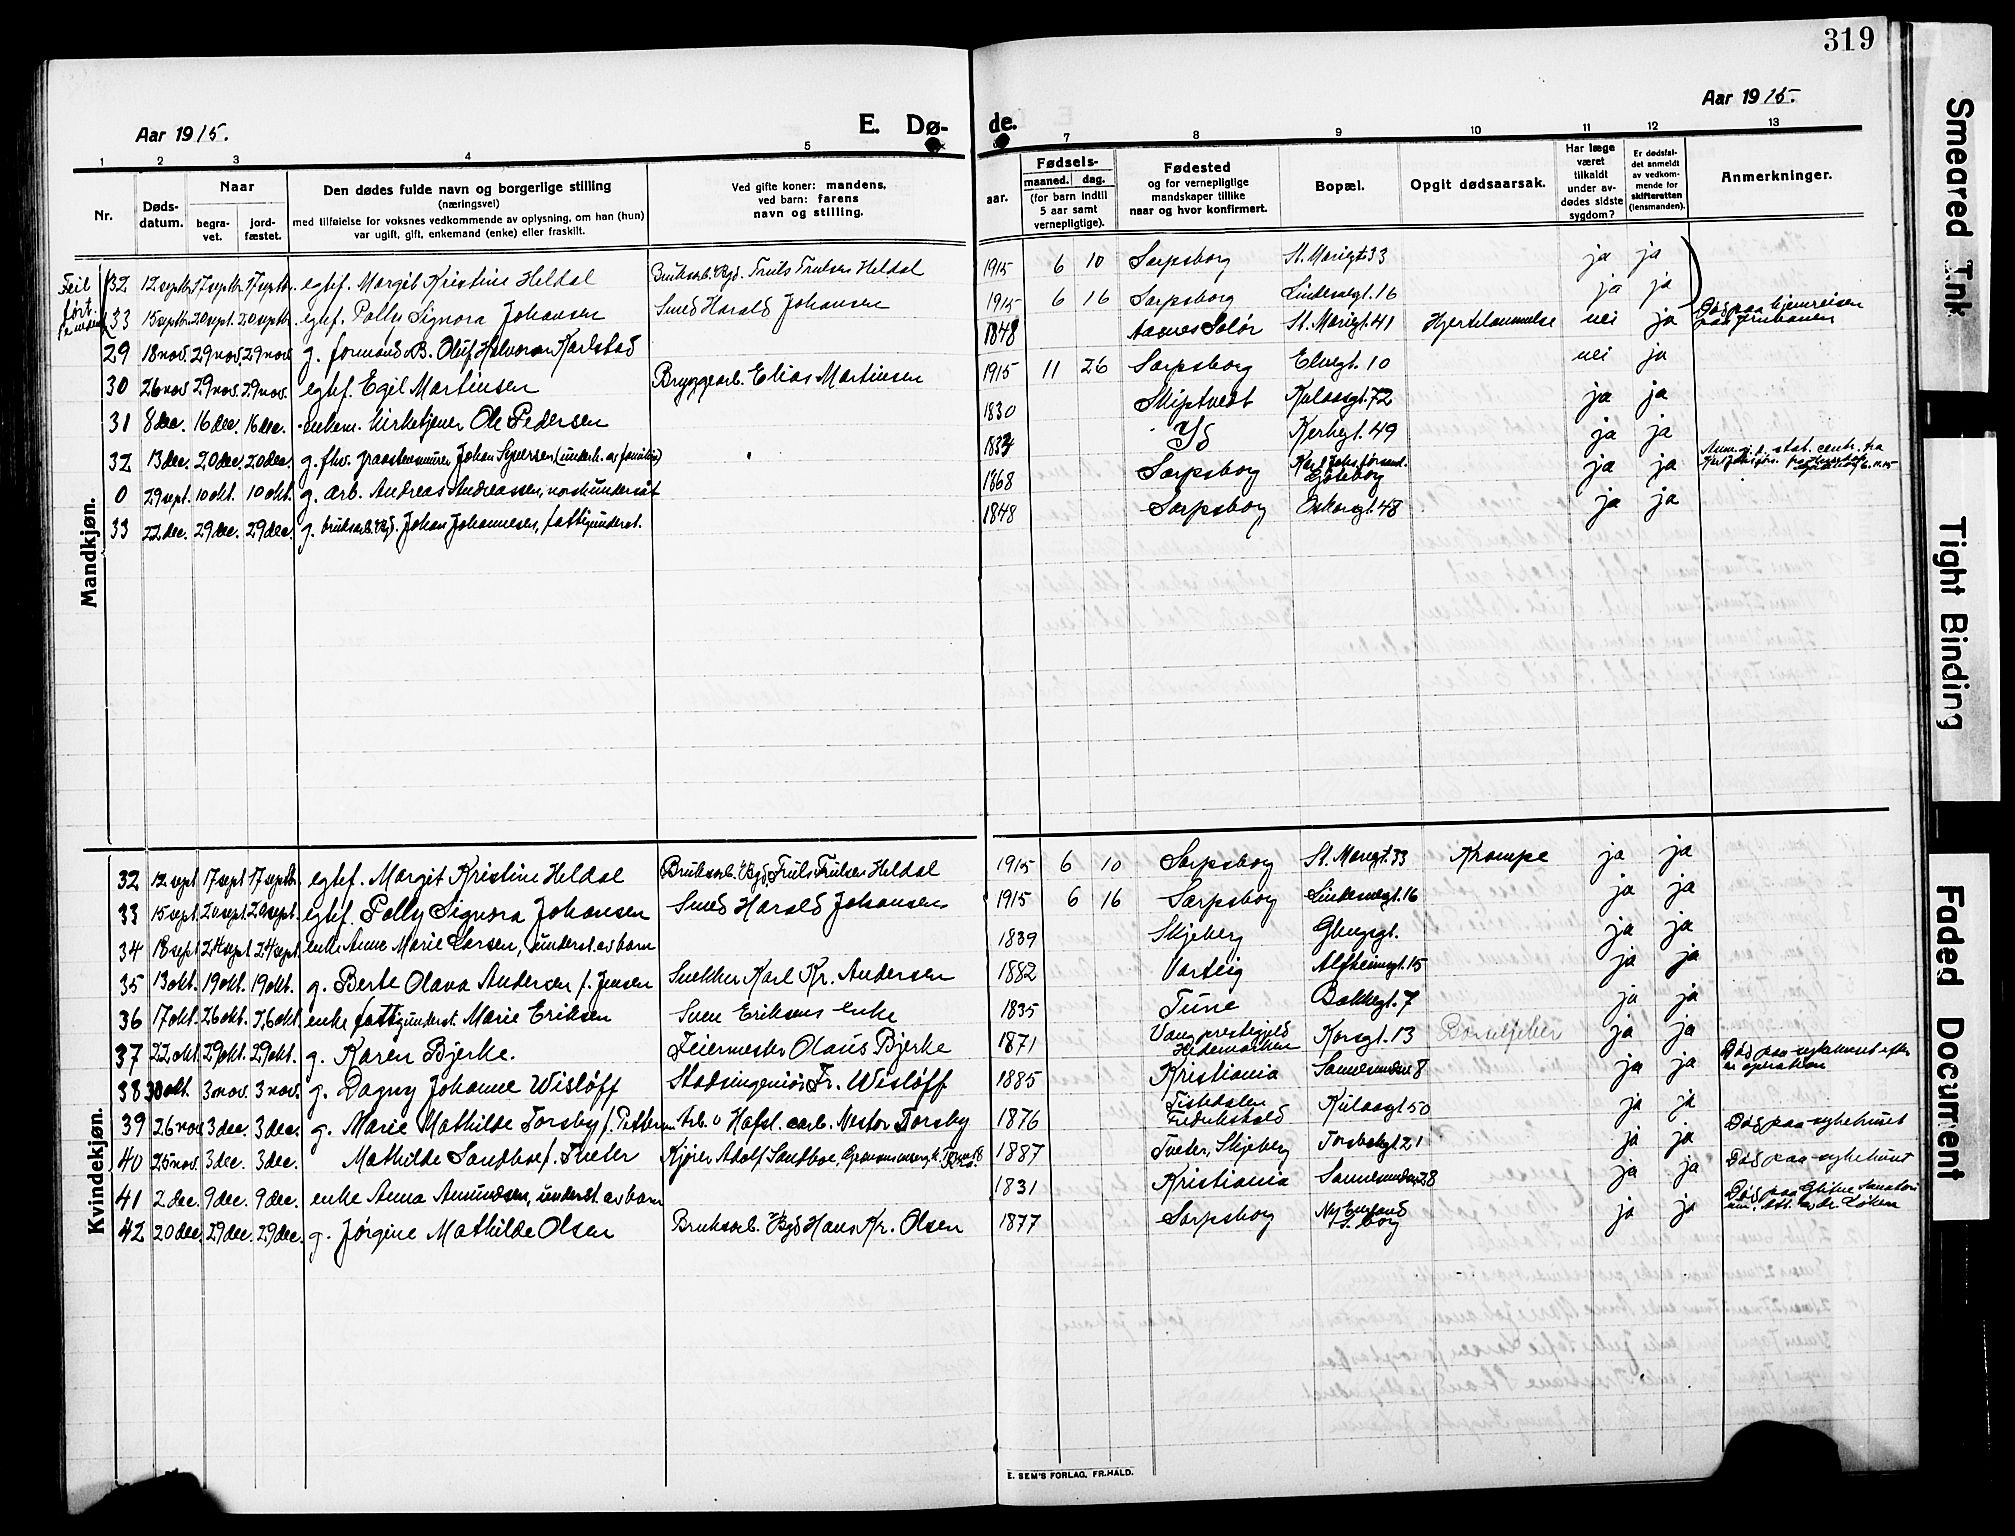 319
Aar 1915.
E. Dø-
de.
Aar 1915.
1 2 3 4 5 7 8 9 10 11 12 13
Nr.
Døds-
datum.
Naar
begra-
vet.
jord-
fæstet.
Den dødes fulde navn og borgerlige stilling
(næringsvei)
med tilføielse for voksnes vedkommende av oplysning, om han (hun)
var ugift, gift, enkemand (enke) eller fraskilt.
Ved gifte koner: mandens,
ved barn: farens
navn og stilling.
aar.
Fødsels-
maaned. dag.
(for barn indtil
5 aar samt
vernepligtige).
Fødested
og for vernepligtige
mandskaper tillike
naar og hvor konfirmert.
Bopæl.
Opgit dødsaarsak.
Har læge
været
tilkaldt
under av-
dødes sidste
sygdom?
Er dødsfal-
det anmeldt
av vedkom-
mende for
skifteretten
(lensmanden).
Anmerkninger.
Mandkjøn.
Feil
ført
32 12 septbr. 17 septbr. 17 septbr. egtef. Margit Kristine Heldal Bruksarb. Bgd. Truls Trulsen Heldal 1915 6 10 Sarpsborg St. Mariegt. 33 ja ja
33 15 septbr. 20 sept. 20 septbr. egtef. Polly Signora Johansen Smed Harald Johansen 1915 6 16 Sarpsborg Lindesnesgt. 16 ja ja
29 18 nov. 29 nov. 29 nov. g. formand v. B. Oluf Halvorsen Karlstad 1848 Aasnes Solør St. Mariegt. 41 Hjertelammelse nei ja Død paa hjemreisen
paa jernbanen
30 26 nov. 29 nov. 29 nov. egtef. Egil Martinsen Bryggearb. Elias Martinsen 1915 11 26 Sarpsborg Elvegt. 10 nei ja
31 8 dec. 16 dec. 16 dec. enkem. kirketjener Ole Pedersen 1830 Skiptvedt Kulaasgt. 72 ja ja
32 13 dec. 20 dec. 20 dec. g. fhv. graastensmurer Johan Syversen (underh. av familie) 1834 Id Kirkegt. 49 ja ja
0 29 sept. 10 okt. 10 okt. g. arb. Andreas Andreassen, norsk undersåt 1868 Sarpsborg Karl Johs. forsaml.
Göteborg ja ja
33 22 dec. 29 dec. 29 dec. g. bruksarb. Bgd. Johan Johannesen, fattigunderst. 1848 Sarpsborg Oskarsgt. 48 ja ja
Kvindekjøn.
32 12 sept 17 sept 17 septbr. egtef. Margit Kristine Heldal Bruksarb. Bgd. Truls Trulsen Heldal 1915 6 10 Sarpsborg St. Mariegt. 33 Krampe ja ja
33 15 sept. 20 sept. 20 sept. egtef. Polly Signora Johansen Smed Harald Johansen 1915 6 16 Sarpsborg Lindesnesgt. 16 ja ja
34 18 sept 24 sept 24 sept. enke Anne Marie Larsen, underst. av barn 1839 Skjeberg Glengsgt. ja ja
35 13 okt. 19 okt. 19 okt. g. Berte Olava Andersen f. Jensen Snekker Karl Kr. Andersen 1882 Varteig Alfheimgt. 15 ja ja
36 17 okt. 26 okt. 26 okt. enke fattigunderst. Marie Eriksen Sven Eriksens enke 1835 Tune Bakkegt. 7 ja ja
37 22 okt 29 okt. 29 okt. g. Karen Bjerke. Feiermester Olaus Bjerke 1871 Vang prestegjeld
Hedemarken Korsgt. 13 Barselfeber ja ja
38 30 okt. 3 nov. 3 nov. g. Dagny Johanne Wisløff Stadsingeniør Fr. Wisløff 1885 Kristiania Sannesundsv. 8 ja ja Død paa sykehuset efter
en operation
39 26 nov 3 dec. 3 dec. g. Marie Mathilde Torsby f. Pettersen Arb. v Hafsl. carb. Nestor Torsby 1876 Tistedalen
Fredrikshald Kulaasgt 50 ja ja Død paa sykehuset
40 25 nov. 3 dec. 3 dec. Mathilde Sandboe f. Tveter Kjører Adolf Sandboe, 1887 Tveter, Skjeberg Torsbekgt. 21 ja ja Død paa sykehuset
41 2 dec. 9 dec. 9 dec. enke Anna Amundsen, underst. av barn 1831 Kristiania Sannesundsv. 28 ja ja
42 20 dec. 29 dec. 29 dec. g. Jørgine Mathilde Olsen Bruksarb. Bgd Hans Kr. Olsen 1877 Sarpsborg Nybergsund
S. borg ja ja Død paa Glitre Sanatori
um. Att. av dr. Løken
E. SEM'S FORLAG, FR.HALD.
Smeared Ink
Tight Binding
Faded Document